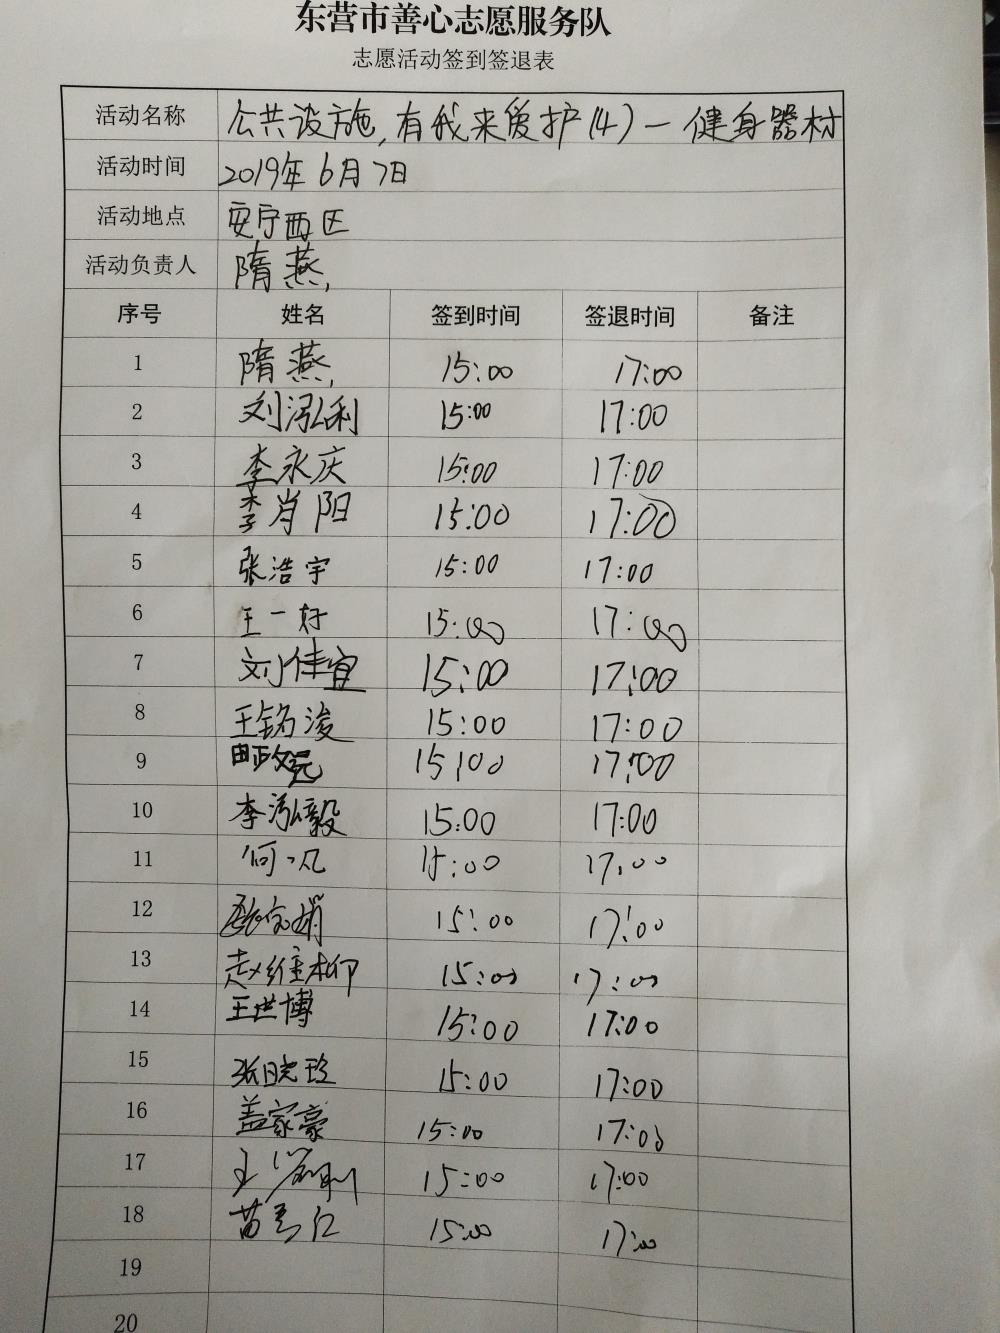 东营市善心志愿服务队
志愿活动签到签退表
活动名称 公共设施,有我来爱护(4)一健身器材
活动时间 2019年6月7日
活动地点 安宁西区
活动负责人 隋燕
序号 姓名 签到时间 签退时间 备注
1 隋燕 15:00 17:00
2 刘泓利 15:00 17:00
3 李永庆 15:00 17:00
4 李肖阳 15:00 17:00
5 张浩宇 15:00 17:00
6 王一好 15:00 17:00
7 刘佳宜 15:00 17:00
8 王铭浚 15:00 17:00
9 15:00 17:00
10 李泓毅 15:00 17:00
11 15:00 17:00
12 15:00 17:00
13 15:00 17:00
14 王世博 15:00 17:00
15 张晓玲 15:00 17:00
16 盖家豪 15:00 17:00
17 15:00 17:00
18 15:00 17:00
19
20